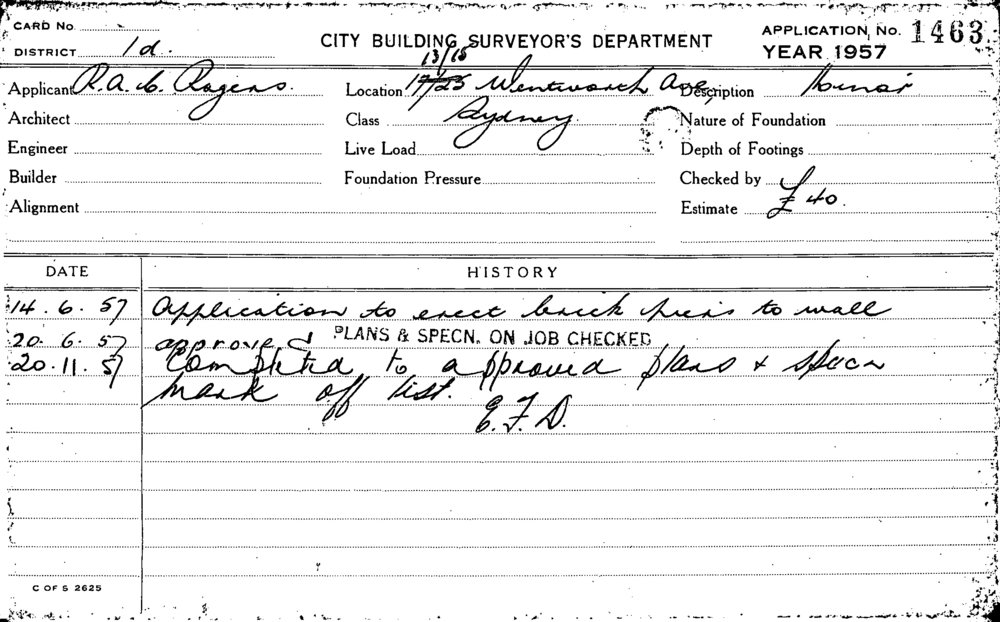 CARD No.
DISTRICT 1d.
CITY BUILDING SURVEYOR'S DEPARTMENT
APPLICATION, No. 1463
YEAR 1957
13/15
Applicant R.A. & Rogers. Location 17/25 Wentworth Ave, Description Minor
Architect Class Sydney. Nature of Foundation
Engineer Live Load Depth of Footings
Builder Foundation Pressure Checked by
Alignment Estimate £ 40.
DATE HISTORY
14. 6. 57 Application to erect brick piers to wall
20. 6. 57 approved PLANS & SPECN. ON JOB CHECKED
20. 11. 57 Completed to approved plans + specn
mark off list.
E.F.D.
C OF S 2625